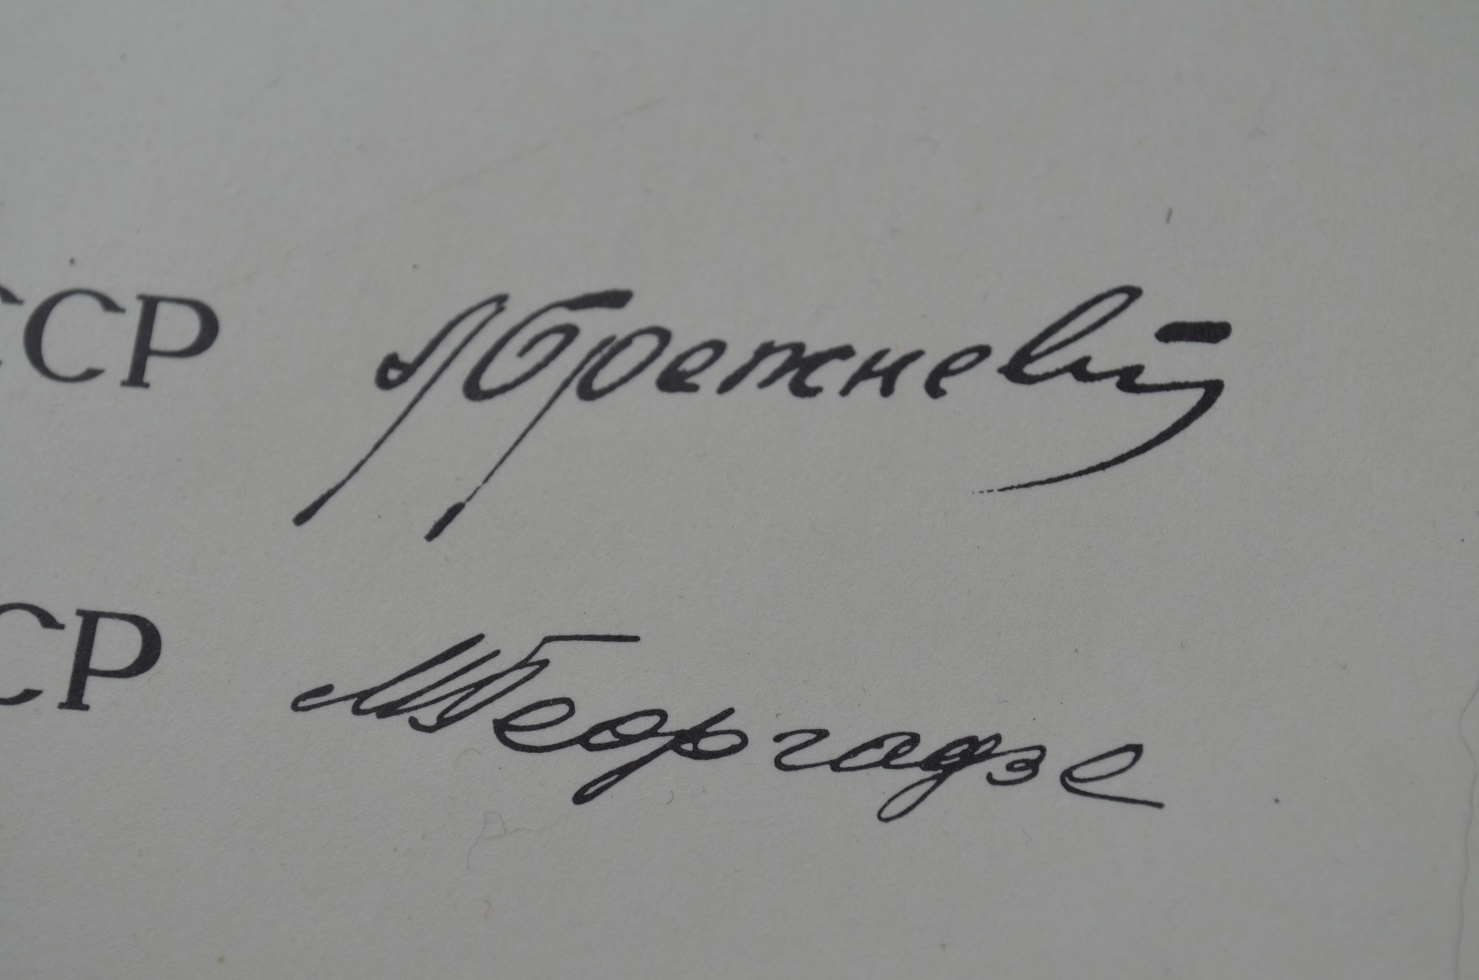 ССР ЛБрежнев
СР МГеоргадзе